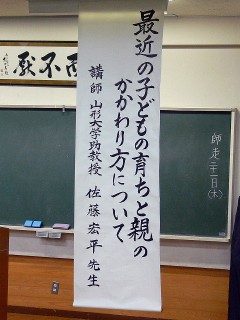 最近の子どもの育ちと親の
かかわり方について
講師 山形大学助教授 佐藤宏平先生
師走二十一日(木)
而不厭